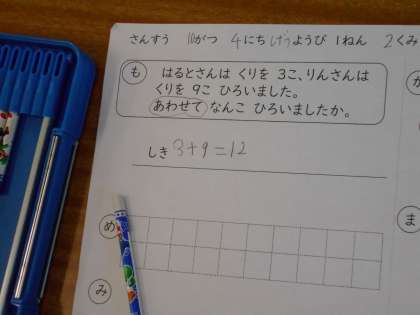 さんすう 10がつ 4にち げつようび 1ねん 2くみ
も
はるとさんは くりを 3こ、りんさんは
くりを 9こ ひろいました。
あわせて なんこ ひろいましたか。
しき 3+9=12
め
ま
み